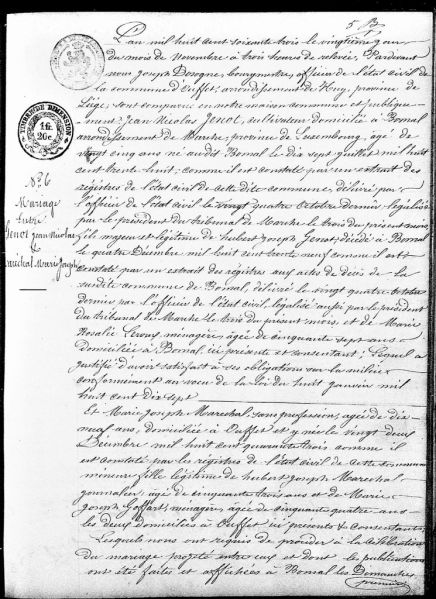 L'an mil huit cent soixante trois le vingtième jour
du mois de Novembre à trois heures de relevée, Pardevant
nous Joseph Dosogne, bourgmestre, officier de l'état civil de
la commune d'Ouffet, arrondissement de Huy, province de
Liège, sont comparus en notre maison commune et publique-
ment Jean Nicolas Jenot, cultivateur domicilié à Bomal
arrondissement de Marche, province de Luxembourg, agé de
vingt cinq ans né audit Bomal le dix sept juillet mil huit
cent trente huit; comme il est constaté par un extrait des
registres de l'état civil de cette dite commune, délivré par
l'officier de l'état civil le vingt quatre octobre dernier légalisé
par le président du tribunal de Marche le trois du présent mois,
fils majeur et légitime de hubert Joseph Jenot, décédé à Bomal
le quatre Décembre mil huit cent trente neuf comme il est
constaté par un extrait des registres aux actes de décès de la
susdite commune de Bomal, délivré le vingt quatre octobre
dernier par l'officier de l'état civil, légalisé aussi par le président
du tribunal de Marche le trois du présent mois, et de Marie
Rosalie ménagère, agée de cinquante sept ans
domiciliée à Bomal, ici présente et consentant; Lequel a
justifié d'avoir satisfait à ses obligations sur la milice
conformément au voeu de la loi du huit janvier mil
huit cent dix sept
Et Marie Joseph Marechal, sans profession, agée de dix
neuf ans, domiciliée à Ouffet et y née le vingt deux
Décembre mil huit cent quarante trois comme il
est constaté par les registres de l'état civil de cette commune
mineure fille légitime de hubert Joseph Marechal
journalier, agé de cinquante trois ans et de Marie
Joseph Goffart, ménagère, agée de cinquante quatre ans
les deux domiciliés à Ouffet, ici présents & consentants
Lesquels nous ont requis de procéder à la célébration
du mariage projeté entre eux et dont les publications
ont été faites et affichées à Bomal les Dimanches
premier
TIMBRE DE DIMENSION
1 fr.
20 c.
N° 6
Mariage
Entre
Jenot Jean Nicolas
&
Maréchal Marie Joseph